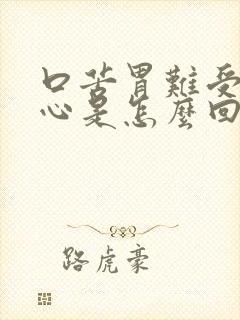 口苦胃難受
心是怎麼回
路虎豪